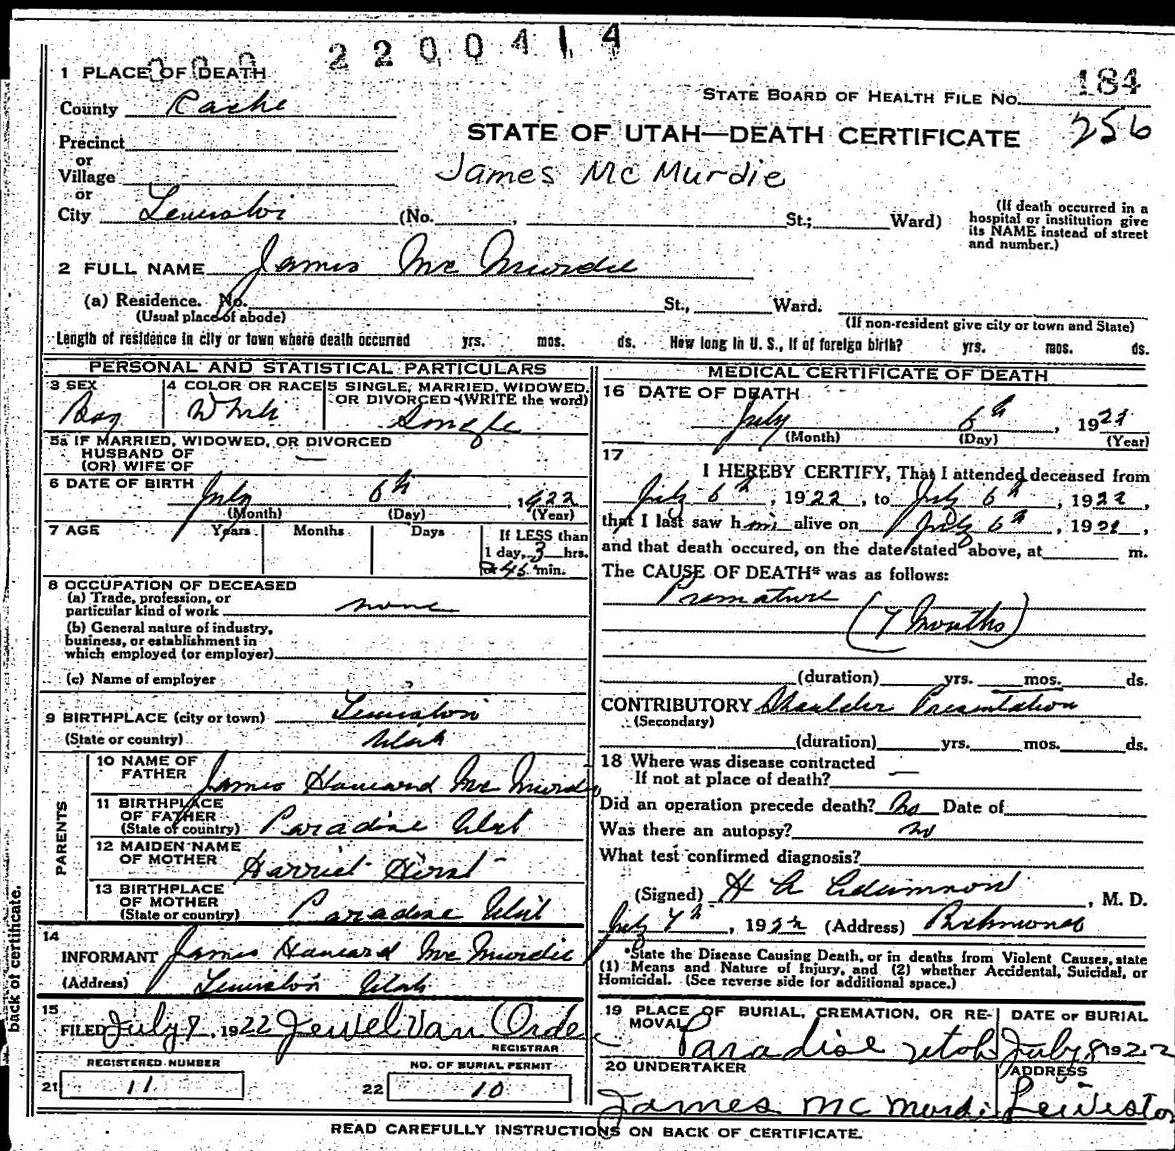 2200414
1 PLACE OF DEATH
184
STATE BOARD OF HEALTH FILE No.
County Cache
256
STATE OF UTAH—DEATH CERTIFICATE
Precinct
or
Village
James Mc Murdie
or
City Lewiston (No. , St.; Ward)
(If death occurred in a
hospital or institution give
its NAME instead of street
and number.)
2 FULL NAME James Mc Murdie
(a) Residence. No. St., Ward.
(Usual place of abode)
(If non-resident give city or town and State)
Length of residence in city or town where death occurred yrs. mos. ds. How long in U. S., if of foreign birth? yrs. mos. ds.
PERSONAL AND STATISTICAL PARTICULARS
3 SEX
Boy
4 COLOR OR RACE
White
5 SINGLE, MARRIED, WIDOWED,
OR DIVORCED (WRITE the word)
Single
5a IF MARRIED, WIDOWED, OR DIVORCED
HUSBAND OF
(OR) WIFE OF —
6 DATE OF BIRTH
July 6th 1922
(Month) (Day) (Year)
7 AGE Years Months Days
If LESS than
1 day, 3 hrs.
45 min.
8 OCCUPATION OF DECEASED
(a) Trade, profession, or
particular kind of work none
(b) General nature of industry,
business, or establishment in
which employed (or employer)
(c) Name of employer
9 BIRTHPLACE (city or town) Lewiston
(State or country) Utah
PARENTS
10 NAME OF
FATHER James Howard Mc Murdie
11 BIRTHPLACE
OF FATHER
(State or country) Paradise Utah
12 MAIDEN NAME
OF MOTHER Harriet Hirst
13 BIRTHPLACE
OF MOTHER
(State or country) Paradise Utah
14
INFORMANT James Howard Mc Murdie
(Address) Lewiston Utah
15
FILED July 7, 1922 Jewel Van Orde
REGISTRAR
REGISTERED NUMBER
21 11
NO. OF BURIAL PERMIT
22 10
MEDICAL CERTIFICATE OF DEATH
16 DATE OF DEATH
July 6th, 1922
(Month) (Day) (Year)
17
I HEREBY CERTIFY, That I attended deceased from
July 6th, 1922, to July 6th, 1922,
that I last saw him alive on July 6th, 1922,
and that death occured, on the date stated above, at m.
The CAUSE OF DEATH* was as follows:
Premature
(7 Months)
(duration) yrs. mos. ds.
CONTRIBUTORY Shoulder Presentation
(Secondary)
(duration) yrs. mos. ds.
18 Where was disease contracted
If not at place of death? —
Did an operation precede death? No Date of
Was there an autopsy? no
What test confirmed diagnosis?
(Signed) H A Adamson, M. D.
July 7th, 1922 (Address) Richmond
*State the Disease Causing Death, or in deaths from Violent Causes, state
(1) Means and Nature of Injury, and (2) whether Accidental, Suicidal, or
Homicidal. (See reverse side for additional space.)
19 PLACE OF BURIAL, CREMATION, OR RE-
MOVAL
Paradise Utah
DATE OF BURIAL
July 8 1922
20 UNDERTAKER
James Mc Murdie
ADDRESS
Lewiston
back of certificate.
READ CAREFULLY INSTRUCTIONS ON BACK OF CERTIFICATE.